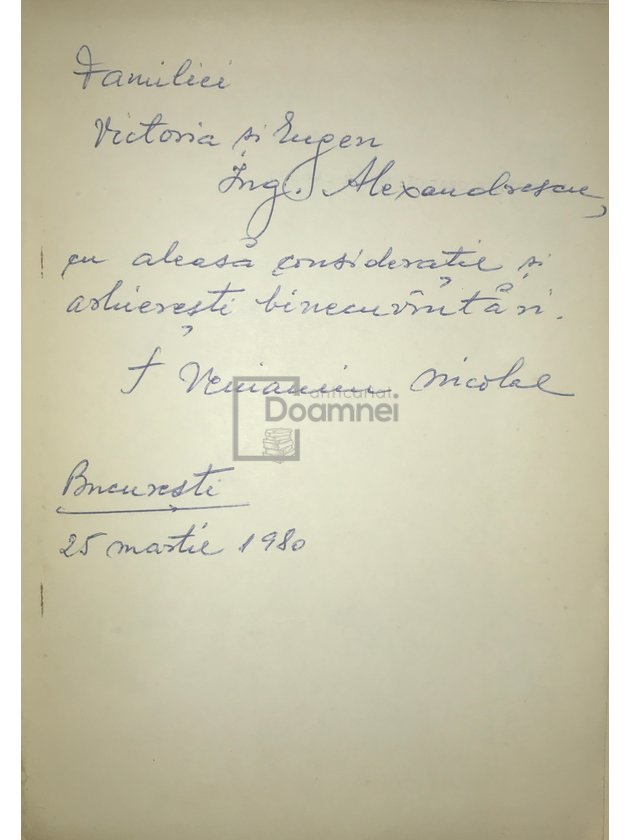 Familiei
Victoria și Eugen
Ing. Alexandrescu,
cu aleasă considerație și
arhierești binecuvîntări.
† Veniamin Nicolae
anticariat
Doamnei
București
25 martie 1980